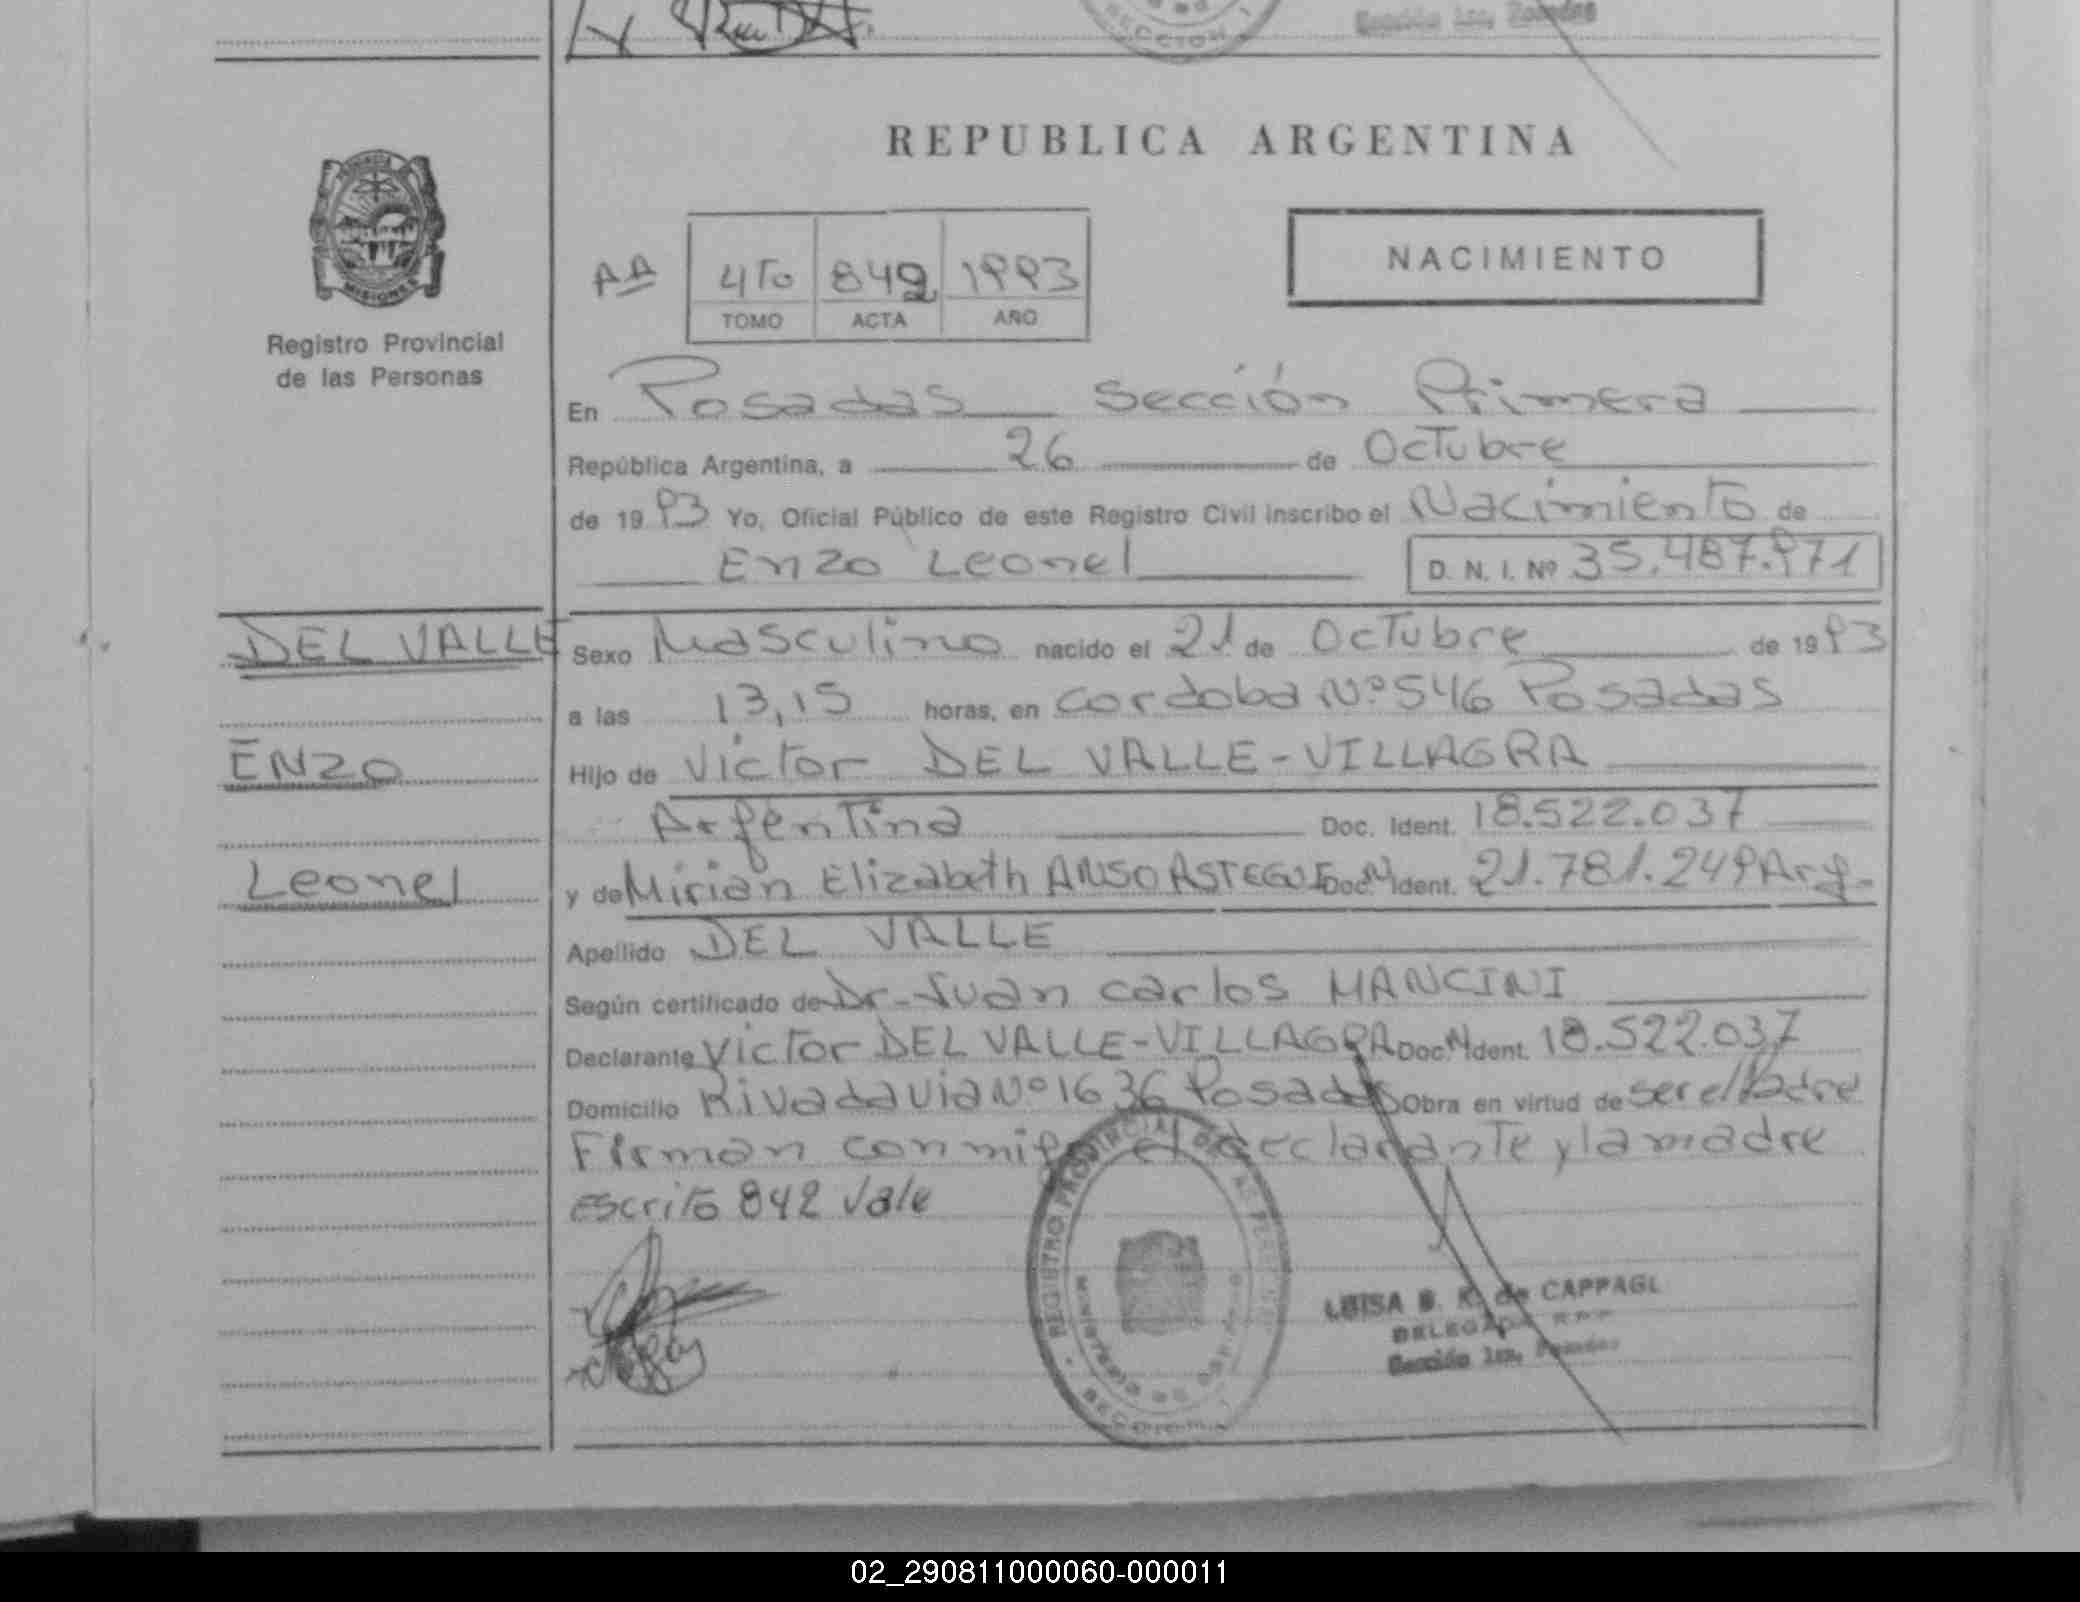 SECCION 1
Sección 1ra, Posadas
REPUBLICA ARGENTINA
MISIONES
Registro Provincial
de las Personas
AA 4to 842 1993
TOMO ACTA AÑO
NACIMIENTO
En Posadas Sección Primera
República Argentina, a 26 de Octubre
de 1993 Yo, Oficial Público de este Registro Civil inscribo el Nacimiento de
Enzo Leonel D. N. I. Nº 35.487.971
DEL VALLE
Enzo
Leonel
Sexo Masculino nacido el 21 de Octubre de 1993
a las 13,15 horas, en Cordoba Nº 546 Posadas
Hijo de Victor DEL VALLE-VILLAGRA
Argentina Doc. Ident. 18.522.037
y de Mirian Elizabeth ANSOASTEGUI Doc. Ident. 21.781.249 Arg.
Apellido DEL VALLE
Según certificado de Dr. Juan Carlos MANCINI
Declarante Victor DEL VALLE-VILLAGRA Doc. Ident. 18.522.037
Domicilio Rivadavia Nº 1636 Posadas Obra en virtud de ser el Padre
Firman conmigo el declarante y la madre
escrito 842 Vale
REGISTRO PROVINCIAL DE LAS PERSONAS
MINISTERIO DE GOBIERNO
SECCION 1
LUISA B. K. de CAPPAGL
DELEGADA R.P.P.
Sección 1ra, Posadas
02_290811000060-000011